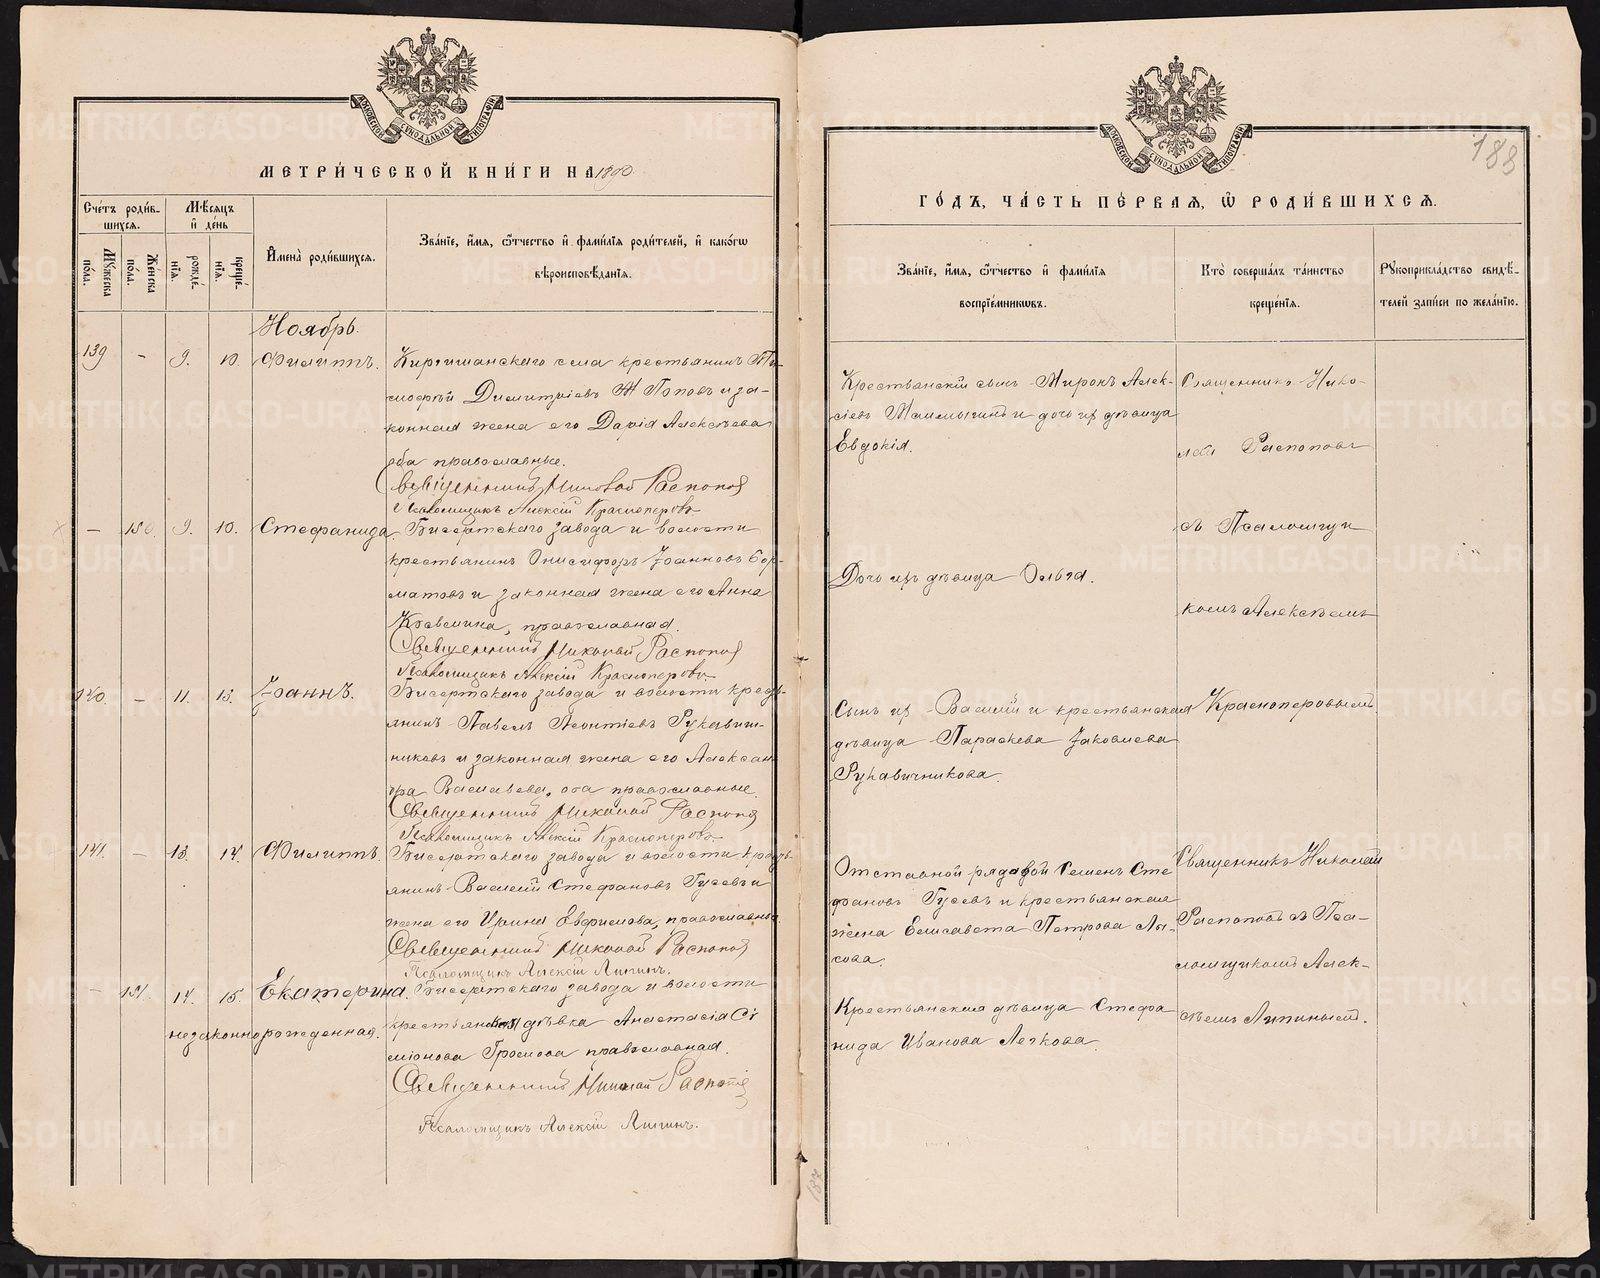 МЕТРИ́ЧЕСКОЙ КНИ́ГИ НА 1890
Сче́тъ роди́в-
шихсѧ.
Мѣ́сѧцъ
и҆ де́нь
Мꙋ́жеска
по́ла.
Же́нска
по́ла.
рожде́-
нїѧ.
креще́-
нїѧ.
И҆мена̀ роди́вшихсѧ.
Зва́нїе, и҆́мѧ, ѻ҆́тчество и҆ фами́лїѧ роди́телей, и҆ како́гѡ
вѣроисповѣ́данїѧ.
Ноябрь.
139 - 9. 10. Филиппъ. Киргишанскаго села крестьянинъ Ти-
моѳей Димитріевъ Поповъ и за-
конная жена его Дарія Алексѣева
оба православные.
Священникъ Николай Распоповъ
Псаломщикъ Алексій Красноперовъ
- 150. 9. 10. Стефанида. Бисертскаго завода и волости
крестьянинъ Онисифоръ Іоанновъ Бор-
матовъ и законная жена его Анна
православная.
Священникъ Николай Распоповъ
Псаломщикъ Алексій Красноперовъ.
140. - 11. 13. Іоаннъ. Бисертскаго завода и волости кресть-
янинъ Павелъ Леонтіевъ Рукавиш-
никовъ и законная жена его Алексан-
дра Васильева, оба православные.
Священникъ Николай Распоповъ
Псаломщикъ Алексій Красноперовъ.
141. - 13. 14. Филиппъ. Бисертскаго завода и волости кресть-
янинъ Василій Стефановъ Гусевъ и
жена его Ирина Евфимова, православные
Священникъ Николай Распоповъ
Псаломщикъ Алексій Липинъ.
- 151. 14. 15. Екатерина. Бисертскаго завода и волости
незаконнорожденная. крестьянская дѣвка Анастасія Си-
міонова Громова православная.
Священникъ Николай Распоповъ
Псаломщикъ Алексій Липинъ.
188
ГО́ДЪ, ЧА́СТЬ ПЕ́РВАѦ, Ѡ҆ РОДИ́ВШИХСѦ.
Зва́нїе, и҆́мѧ, ѻ҆́тчество и҆ фами́лїѧ
воспрїе́мникѡвъ.
Кто̀ соверша́лъ та́инство
креще́нїѧ.
Рꙋкоприкла́дство свидѣ́-
телей за́писи по жела́нїю.
Крестьянскій сынъ Миронъ Алек-
сіевъ и дочь ихъ дѣвица
Евдокія.
Священникъ Нико-
лай Распоповъ
съ Псаломщи-
комъ Алексѣемъ
Красноперовымъ
Дочь ихъ дѣвица Ольга.
Сынъ ихъ Василій и крестьянская
дѣвица Параскева Іаковлева
Рукавичникова.
Отставной рядовой Семенъ Сте-
фановъ Гусевъ и крестьянская
жена Елисавета Петрова Лы-
сова.
Священникъ Николай
Распоповъ съ Пса-
ломщикомъ Алек-
сѣемъ Липинымъ.
Крестьянская дѣвица Стефа-
нида Иванова Легкова.
187